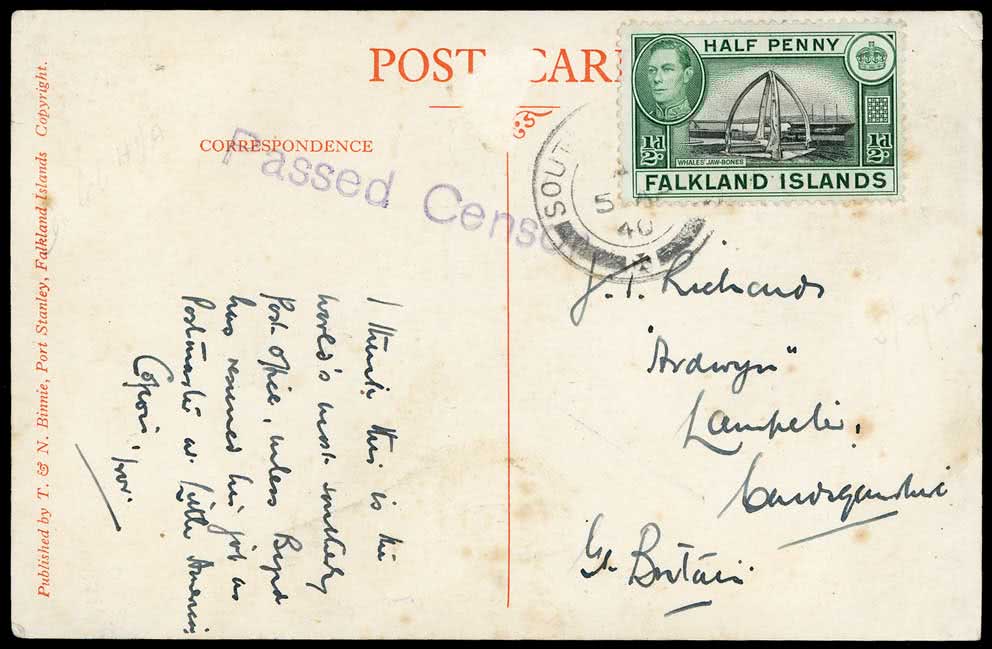 POST CAR
CORRESPONDENCE
Passed Censo
SOUT
5
40
HALF PENNY
½d
½d
WHALES' JAW-BONES
FALKLAND ISLANDS
I think this is the
world's most southerly
Post Office, unless Byrd
has resumed his job as
Postmaster at Little America
Cofion, Ivor.
J. T. Richards
"Ardwyn"
Lampeter,
Cardiganshire
Gt. Britain
Published by T. & N. Binnie, Port Stanley, Falkland Islands Copyright.